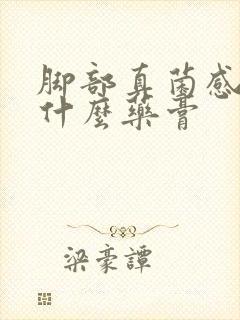 脚部真菌感
什麼藥膏
梁豪譚